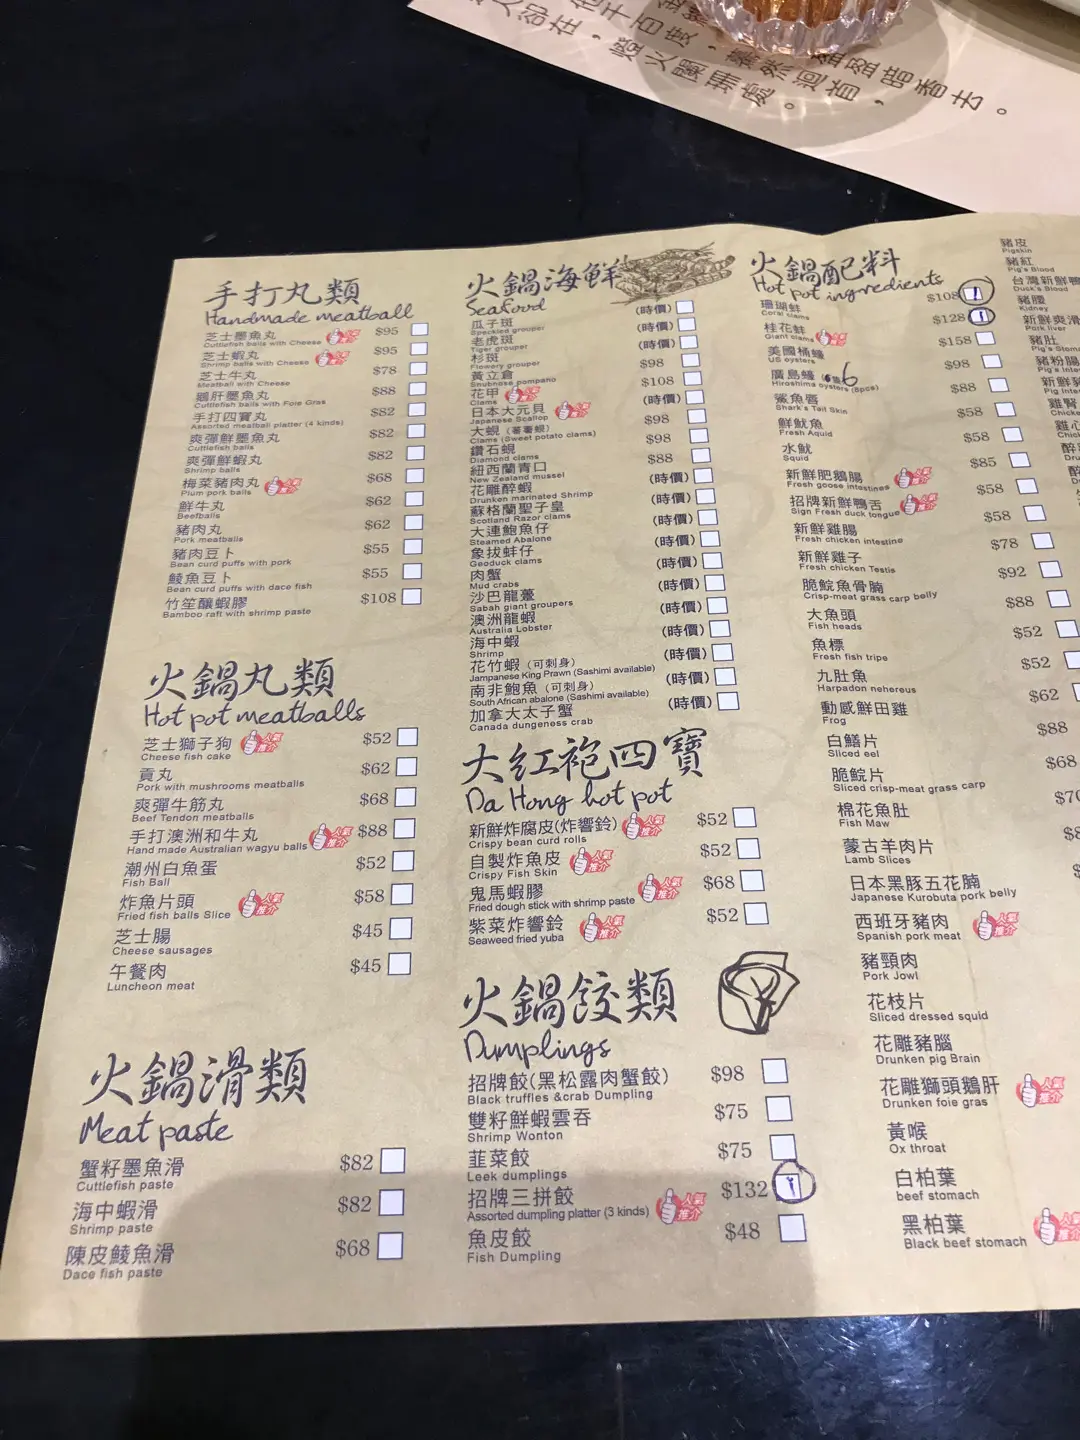 盈盈暗香去。
驀然迴首，
燈火闌珊處。
手打丸類
Handmade meatball
芝士墨魚丸 $95
Cuttlefish balls with Cheese
芝士蝦丸 $95
Shrimp balls with Cheese
芝士牛丸 $78
Meatball with Cheese
鵝肝墨魚丸 $88
Cuttlefish balls with Foie Gras
手打四寶丸 $82
Assorted meatball platter (4 kinds)
爽彈鮮墨魚丸 $82
Cuttlefish balls
爽彈鮮蝦丸 $82
Shrimp balls
梅菜豬肉丸 $68
Plum pork balls
鮮牛丸 $62
Beefballs
豬肉丸 $62
Pork meatballs
豬肉豆卜 $55
Bean curd puffs with pork
鯪魚豆卜 $55
Bean curd puffs with dace fish
竹笙釀蝦膠 $108
Bamboo raft with shrimp paste
火鍋丸類
Hot pot meatballs
芝士獅子狗 人氣推介 $52
Cheese fish cake
貢丸 $62
Pork with mushrooms meatballs
爽彈牛筋丸 $68
Beef Tendon meatballs
手打澳洲和牛丸 人氣推介 $88
Hand made Australian wagyu balls
潮州白魚蛋 $52
Fish Ball
炸魚片頭 人氣推介 $58
Fried fish balls Slice
芝士腸 $45
Cheese sausages
午餐肉 $45
Luncheon meat
火鍋滑類
Meat paste
蟹籽墨魚滑 $82
Cuttlefish paste
海中蝦滑 $82
Shrimp paste
陳皮鯪魚滑 $68
Dace fish paste
火鍋海鮮
Seafood
瓜子斑 (時價)
Speckled grouper
老虎斑 (時價)
Tiger grouper
杉斑 (時價)
Flowery grouper
黃立倉 $98
Snubnose pompano
花甲 $108
Clams
日本大元貝 (時價)
Japanese Scallop
大蜆（蕃薯蜆） $98
Clams (Sweet potato clams)
鑽石蜆 $98
Diamond clams
紐西蘭青口 $88
New Zealand mussel
花雕醉蝦 (時價)
Drunken marinated Shrimp
蘇格蘭聖子皇 (時價)
Scotland Razor clams
大連鮑魚仔 (時價)
Steamed Abalone
象拔蚌仔 (時價)
Geoduck clams
肉蟹 (時價)
Mud crabs
沙巴龍躉 (時價)
Sabah giant groupers
澳洲龍蝦 (時價)
Australia Lobster
海中蝦 (時價)
Shrimp
花竹蝦（可刺身） (時價)
Jampanese King Prawn (Sashimi available)
南非鮑魚（可刺身） (時價)
South African abalone (Sashimi available)
加拿大太子蟹 (時價)
Canada dungeness crab
大紅袍四寶
Da Hong hot pot
新鮮炸腐皮(炸響鈴) 人氣推介 $52
Crispy bean curd rolls
自製炸魚皮 人氣推介 $52
Crispy Fish Skin
鬼馬蝦膠 人氣推介 $68
Fried dough stick with shrimp paste
紫菜炸響鈴 人氣推介 $52
Seaweed fried yuba
火鍋餃類
Dumplings
招牌餃(黑松露肉蟹餃) $98
Black truffles &crab Dumpling
雙籽鮮蝦雲吞 $75
Shrimp Wonton
韮菜餃 $75
Leek dumplings
招牌三拼餃 人氣推介 $132
Assorted dumpling platter (3 kinds)
魚皮餃 $48
Fish Dumpling
火鍋配料
Hot pot ingredients
珊瑚蚌 $108 1
Coral clams
桂花蚌 $128 1
Giant clams
美國桶蠔 $158
US oysters
廣島蠔 6 $98
Hiroshima oysters (8pcs)
鯊魚唇 $88
Shark's Tail Skin
鮮魷魚 $58
Fresh Aquid
水魷 $58
Squid
新鮮肥鵝腸 人氣推介 $85
Fresh goose intestines
招牌新鮮鴨舌 人氣推介 $58
Sign Fresh duck tongue
新鮮雞腸 $58
Fresh chicken intestine
新鮮雞子 $78
Fresh chicken Testis
脆鯇魚骨腩 $92
Crisp-meat grass carp belly
大魚頭 $88
Fish heads
魚標 $52
Fresh fish tripe
九肚魚 $52
Harpadon nehereus
動感鮮田雞 $62
Frog
白鱔片 $88
Sliced eel
脆鯇片 $68
Sliced crisp-meat grass carp
棉花魚肚
Fish Maw
蒙古羊肉片
Lamb Slices
日本黑豚五花腩
Japanese Kurobuta pork belly
西班牙豬肉 人氣推介
Spanish pork meat
豬頸肉
Pork Jowl
花枝片
Sliced dressed squid
花雕豬腦
Drunken pig Brain
花雕獅頭鵝肝 人氣推介
Drunken foie gras
黃喉
Ox throat
白柏葉
beef stomach
黑柏葉
Black beef stomach
豬皮
Pigskin
豬紅
Pig's Blood
台灣新鮮鴨
Duck's Blood
豬腰
Kidney
新鮮爽滑
Pork liver
豬肚
豬粉腸
新鮮豬
雞腎
雞心